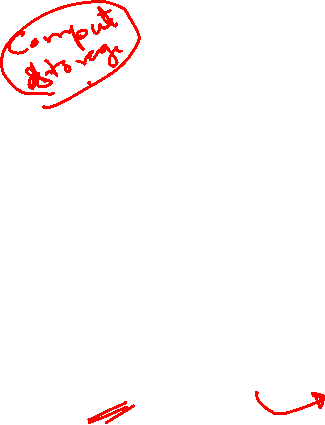 Compute
& storage